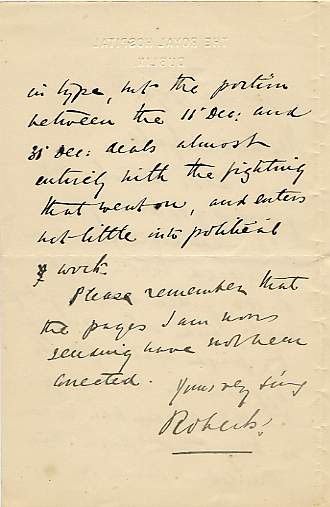 THE ROYAL HOSPITAL
DUBLIN
in type, but the portion
between the 11 Dec: and
31 Dec: deals almost
entirely with the fighting
that went on, and enters
but little into political
work.
Please remember that
the pages I am now
sending have not been
corrected.
Yours very sincy
Roberts.